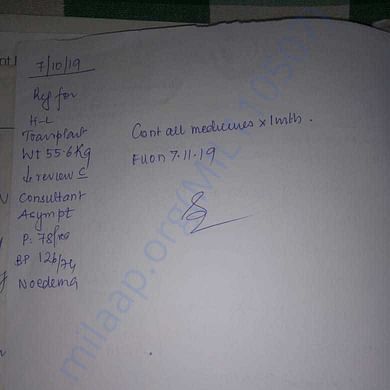 7/10/19
Reg for
H-L
Transplant
Wt 55.6 Kg
↓ review c̄
Consultant
Asympt
P: 78/
BP 126/74
No edema
Cont all medicines x 1 mth.
F/U on 7.11.19
milaap.org/MIL